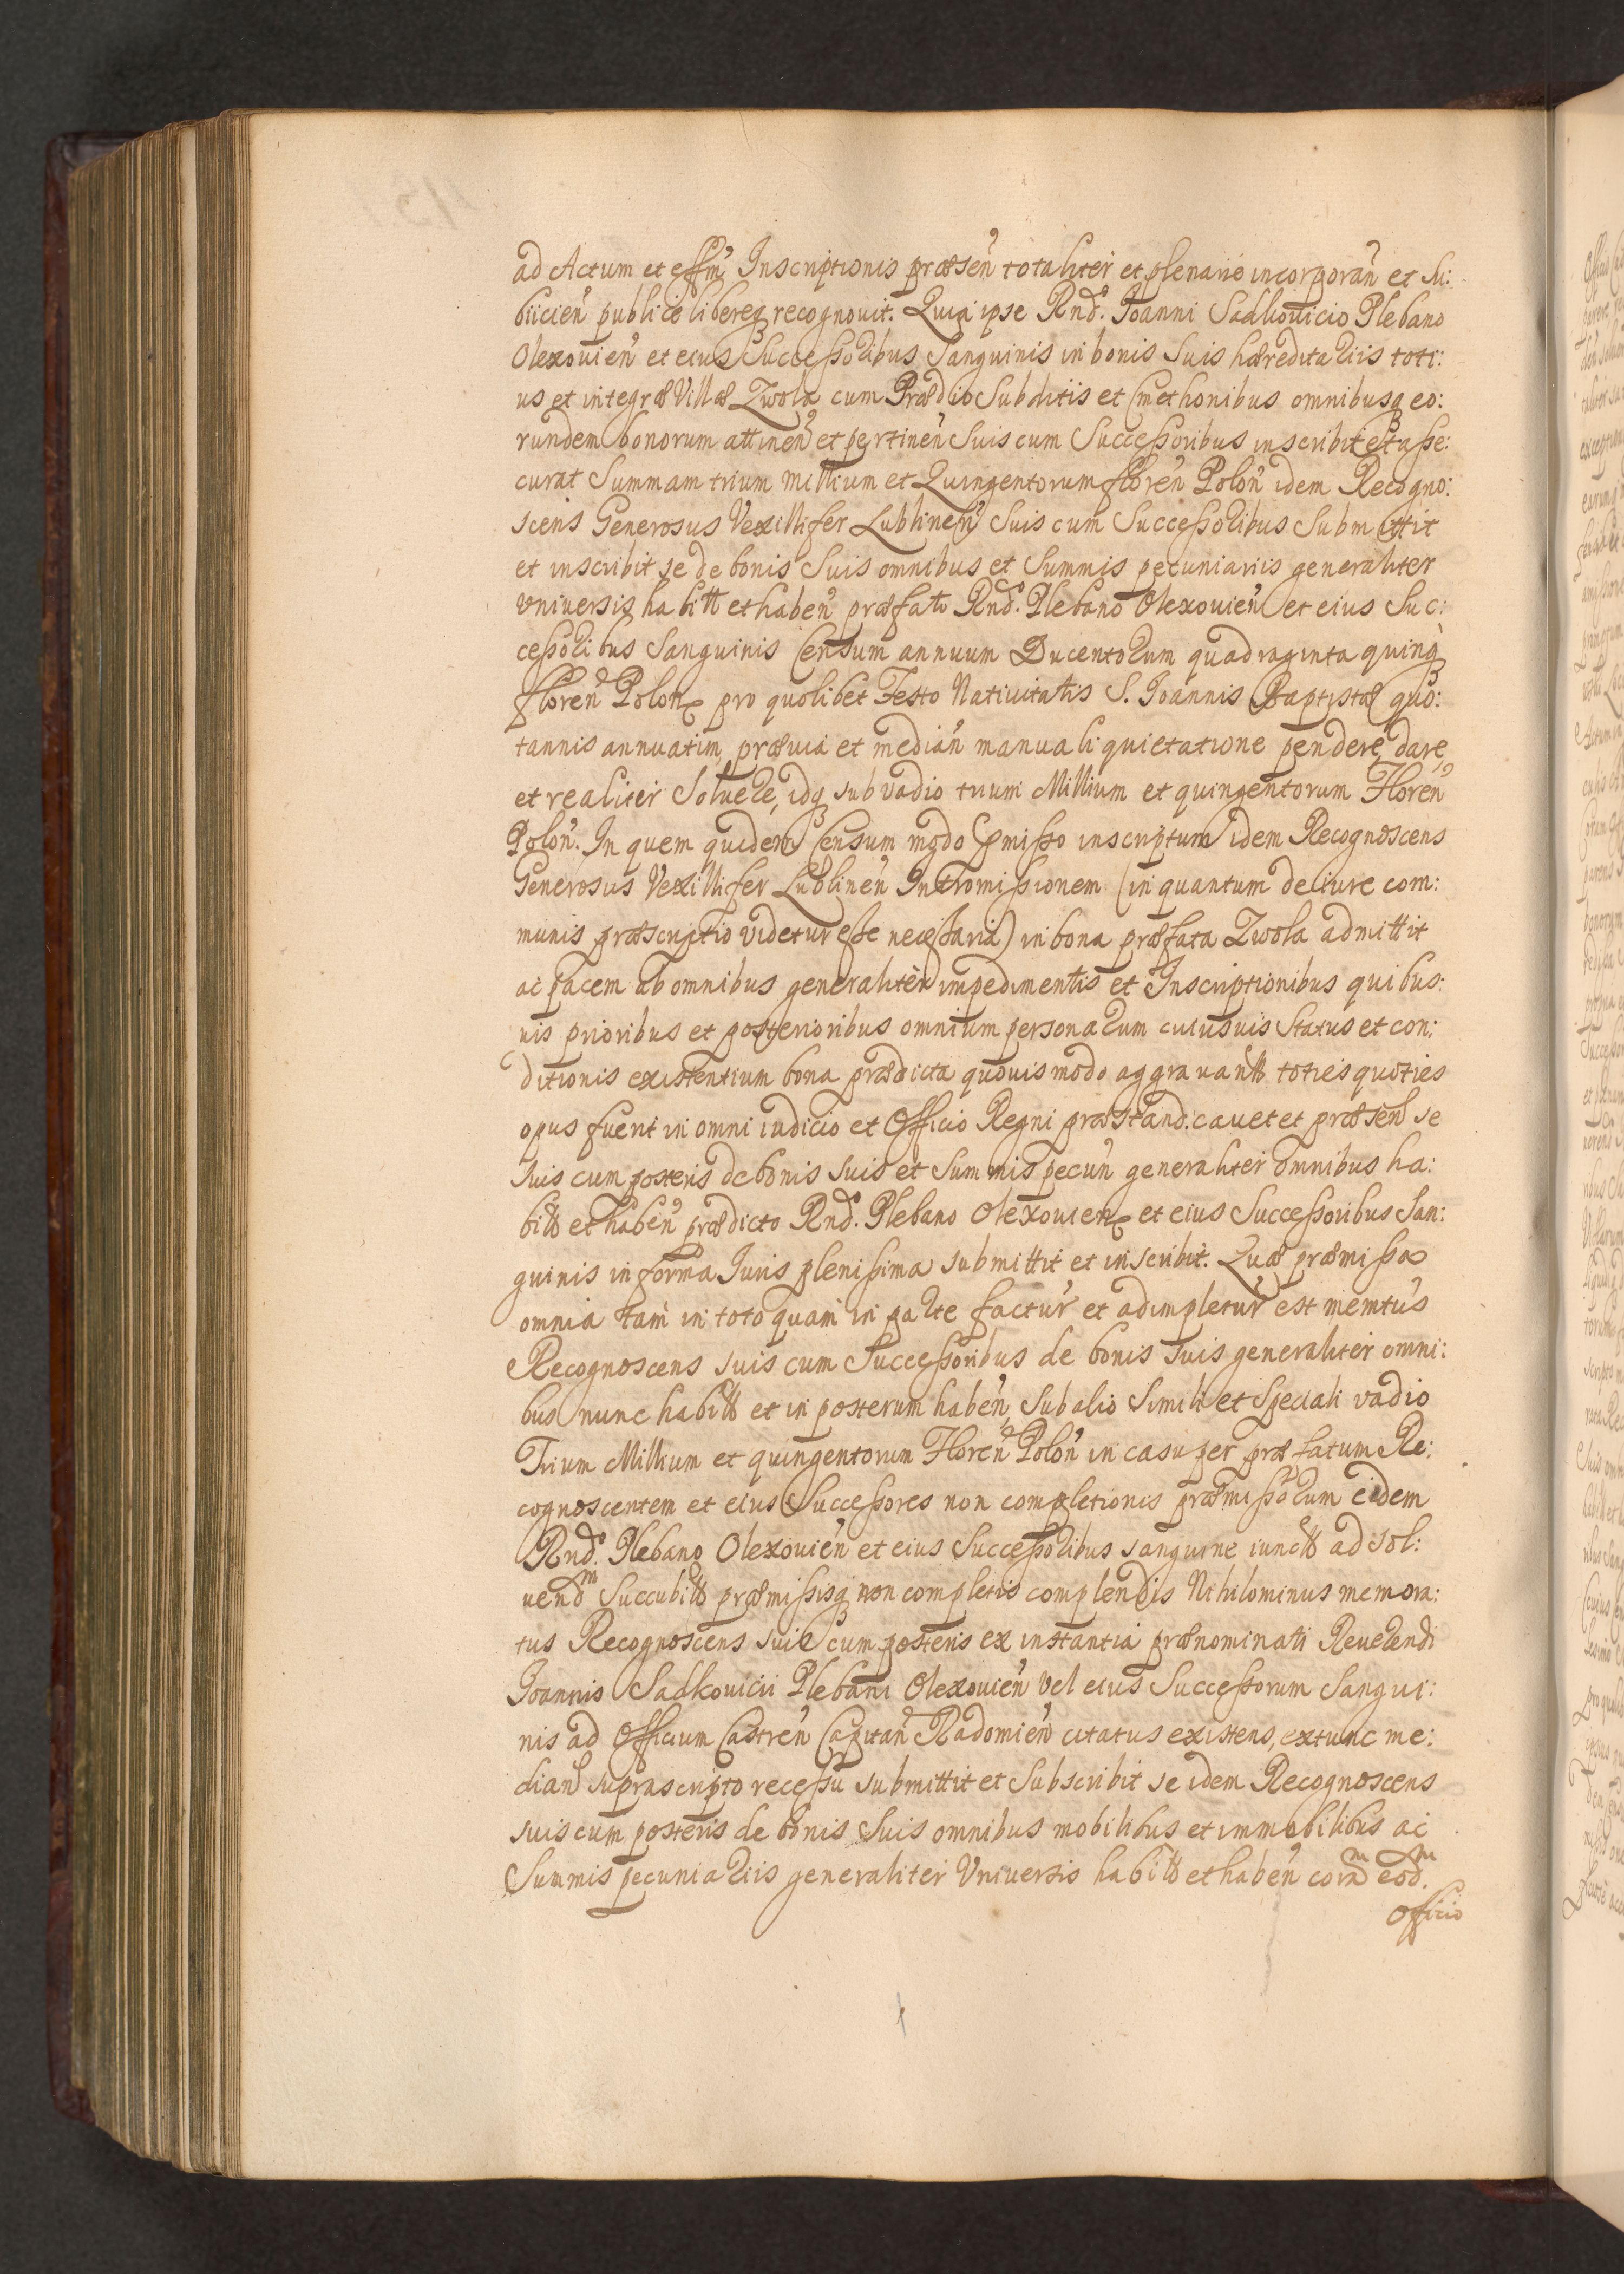 ad Actum et effm Inscriptionis præsen totaliter et plenarie incorporan et su:
biicien publice libereq recognouit. Quia ipse Rnd. Joanni Sadkouicio Plebano
Olexouien et eius Successoribus Sanguinis in bonis suis hæreditariis toti:
us et integræ Villæ Zwola cum Prædio Subditis et Cmethonibus omnibusq eo:
rundem bonorum attinen et pertinen Suis cum Successoribus inscribit et asse:
curat Summam trium Millium et Quingentorum floren Polon idem Recogno:
scens Generosus Vexillifer Lublinen Suis cum Successoribus Submittit
et inscribit se de bonis Suis omnibus et Summis pecuniariis generaliter
vniuersis habitt et haben præfato Rnd. Plebano Olexouien et eius Suc:
cessoribus Sanguinis Censum annuum Ducentorum quadraginta quinq
floren Polon pro quolibet Festo Natiuitatis S. Joannis Baptistæ quo:
tannis annuatim, præuia et median manuali quietatione pendere, dare,
et realiter Soluere, idq sub vadio trium Millium et quingentorum Floren
Polon. In quem quidem Censum modo pmisso inscriptum idem Recognoscens
Generosus Vexillifer Lublinen Intromissionem (in quantum de iure com:
munis præscriptio videtur esse necessaria) in bona præfata Zwola admittit
ac pacem ab omnibus generaliter impedimentis et Inscriptionibus quibus:
uis prioribus et posterioribus omnium personarum cuiusuis Status et con:
ditionis existentium bona prædicta quouismodo aggrauantt toties quoties
opus fuerit in omni iudicio et Officio Regni præstand. cauet et præsen se
suis cum posteris de bonis suis et Summis pecun generaliter omnibus ha:
bitt et haben prædicto Rnd. Plebano Olexouien et eius Successoribus San:
guinis in forma Juris plenissima submittit et inscribit. Quæ præmissa
omnia tam in toto quam in parte factur et adimpletur est memtus
Recognoscens suis cum Successoribus de bonis suis generaliter omni:
bus nunc habitt et in posterum haben, Sub alio Simili et Speciali vadio
Trium Millium et quingentorum Floren Polon in casu per præfatum Re:
cognoscentem et eius Successores non completionis præmissorum eidem
Rnd. Plebano Olexouien et eius Successoribus sanguine iunctt ad sol:
uendm Succubitt præmissisq non completis complendis Nihilominus memora:
tus Recognoscens suis cum posteris ex instantia prænominati Reuerendi
Joannis Sadkouicii Plebani Olexouien vel eius Successorum Sangui:
nis ad Officium Castren Capitan Radomien citatus existens, extunc me:
dian suprascripto recessu submittit et Subscribit se idem Recognoscens
suis cum posteris de bonis Suis omnibus mobilibus et immobilibus ac
Summis pecuniariis generaliter Vniuersis habitt et haben coram eodm.
Officio